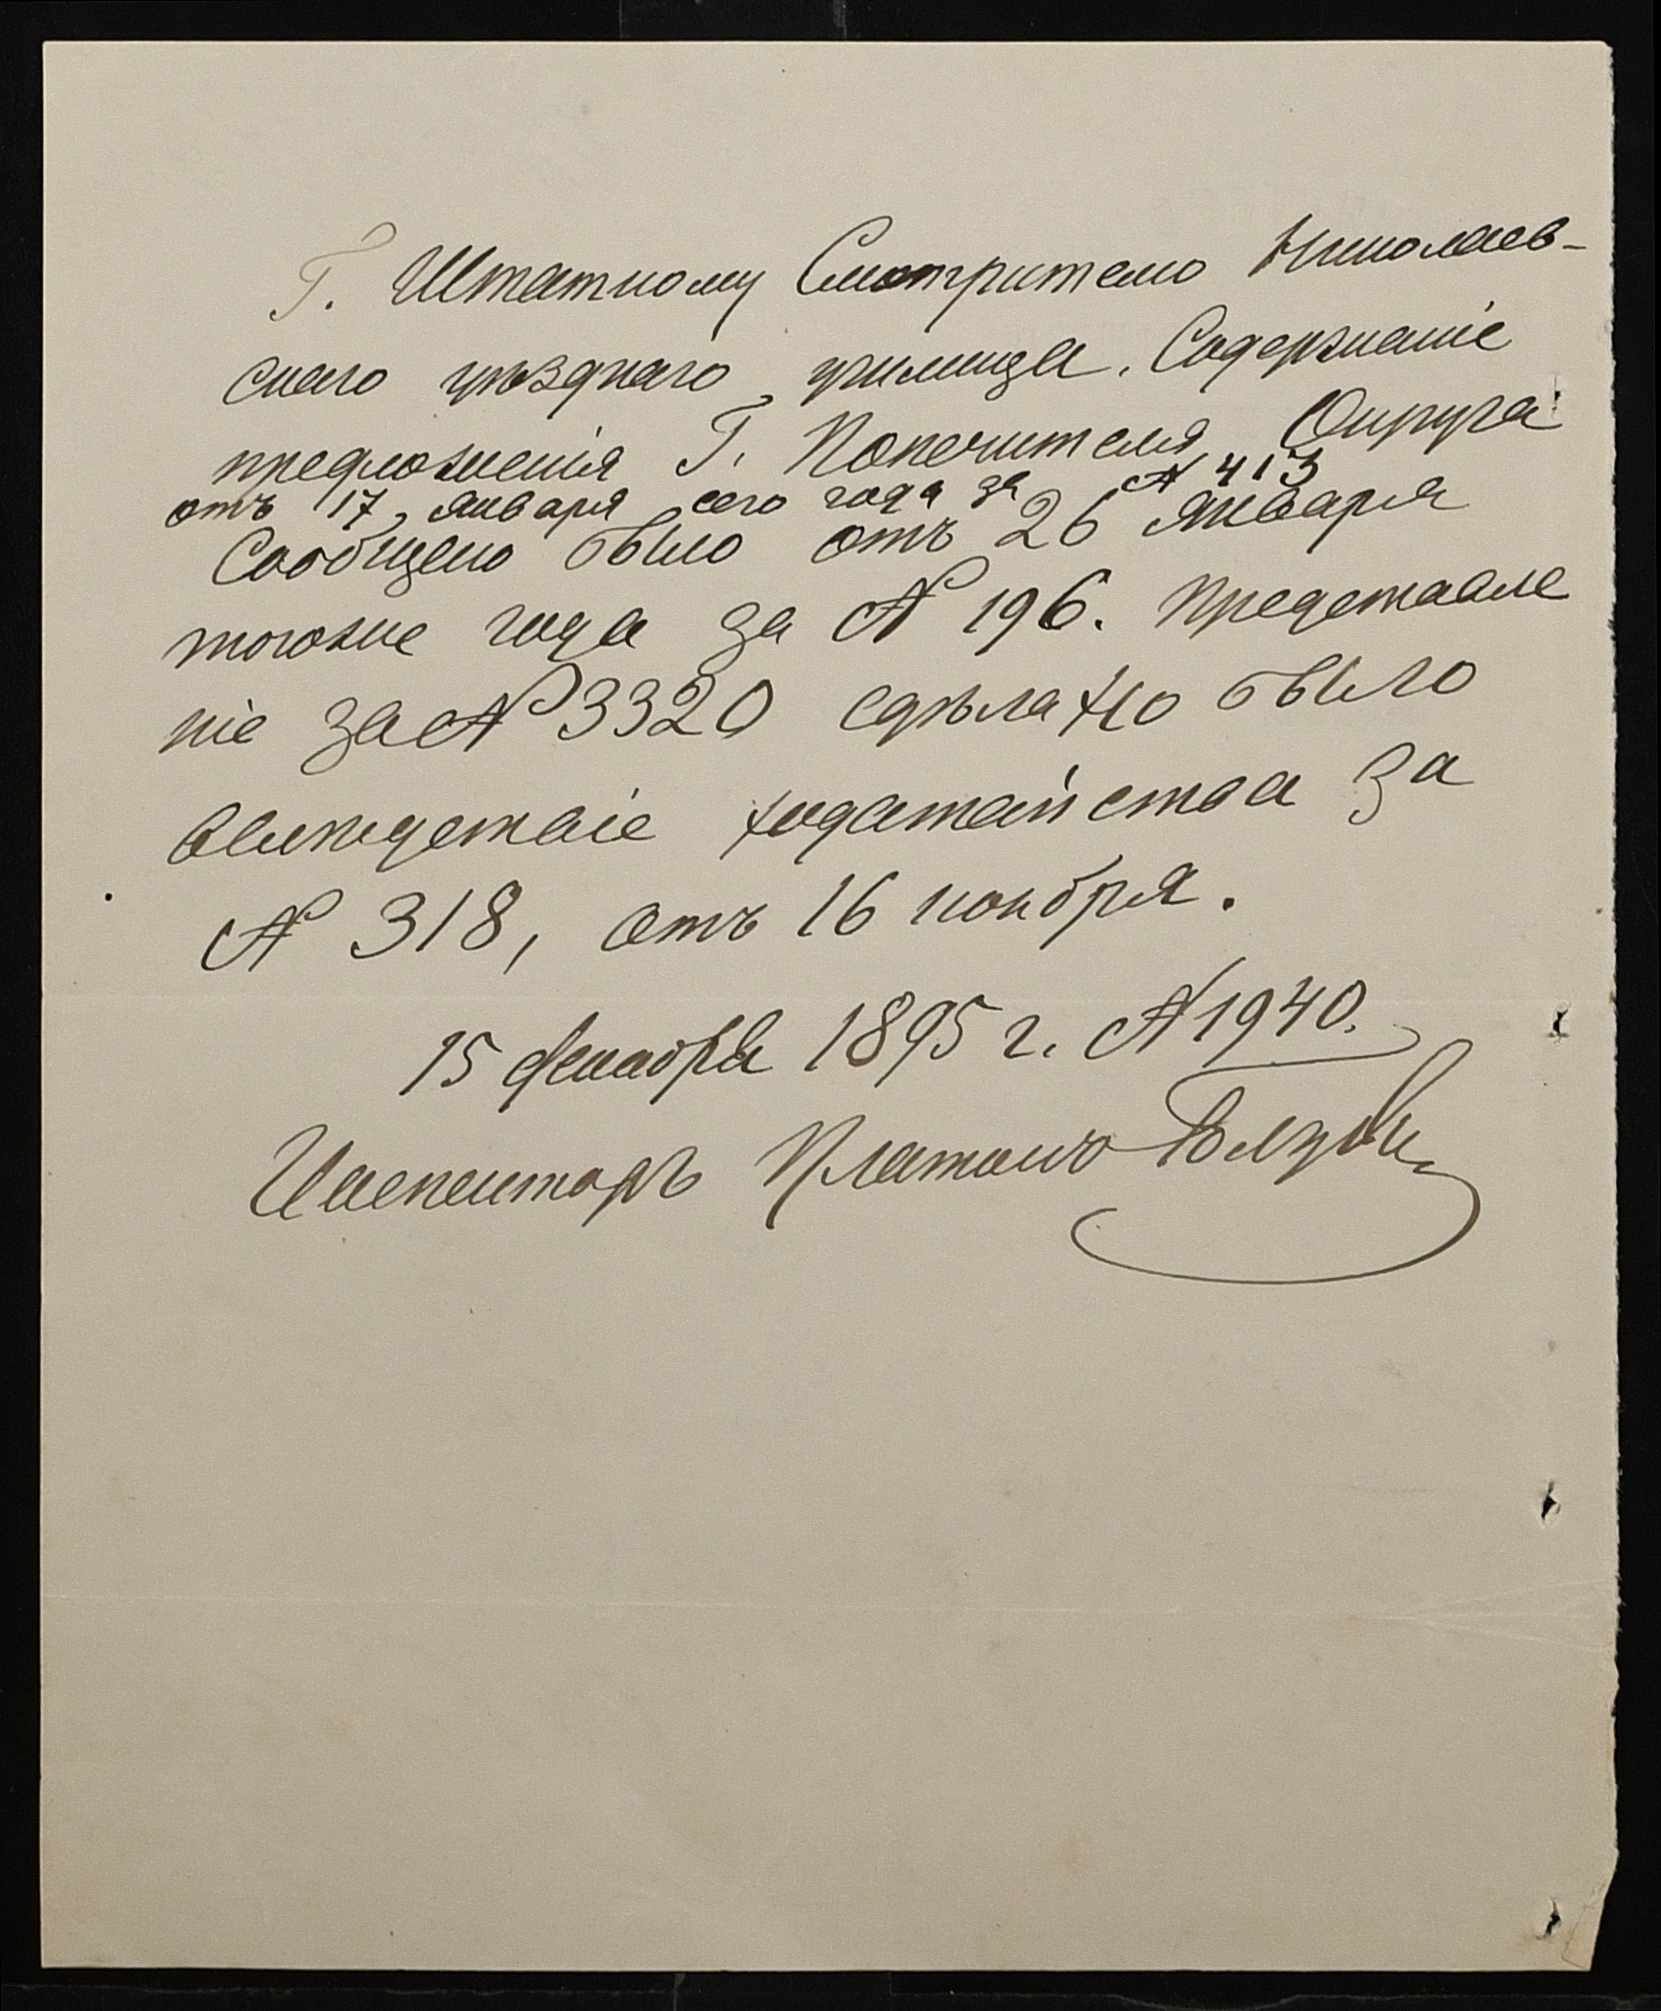 Г. Штатному Смотрителю Николаев-
скаго уѣзднаго училища. Содержаніе
предложенія Г. Попечителя Округа
отъ 17 января сего года за № 413
Сообщено было отъ 26 января
тогоже года за № 196. Представле
ніе за № 3320 сдѣлано было
вслѣдствіе ходатайства за
№ 318, отъ 16 ноября.
15 декабря 1895 г. № 1940.
Инспекторъ Платонъ